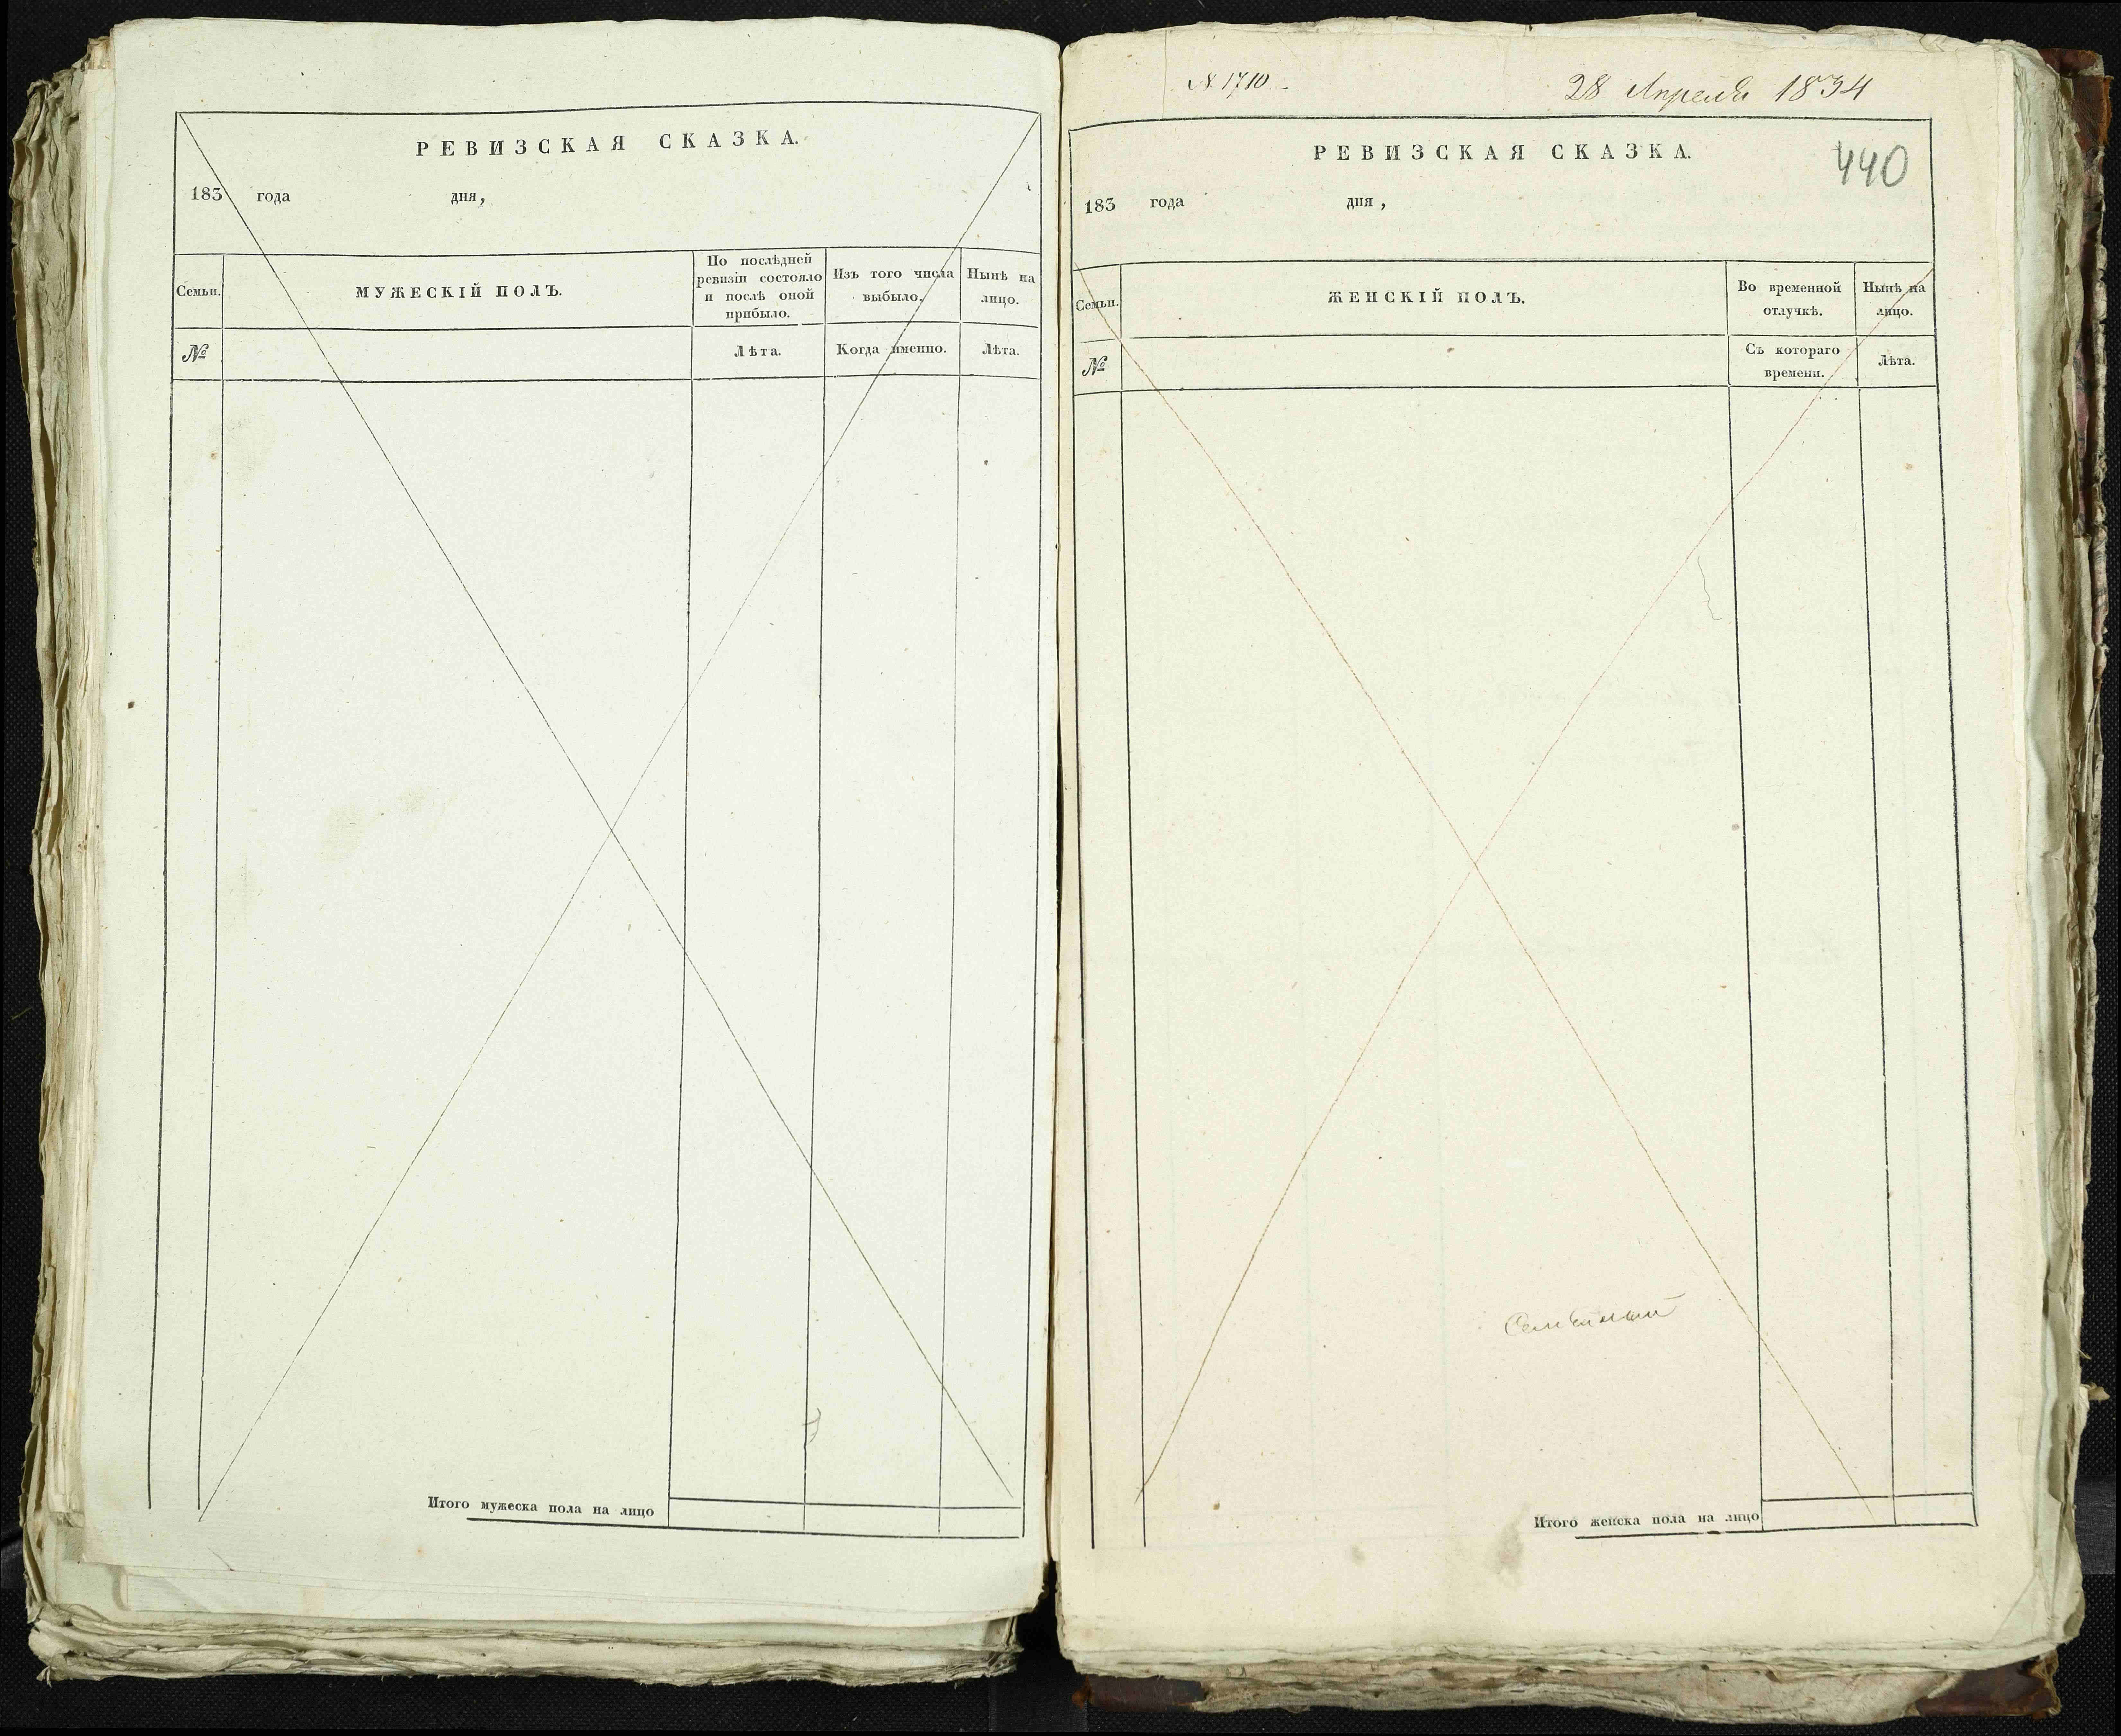 РЕВИЗСКАЯ СКАЗКА.
183 года дня,
Семьи.
МУЖЕСКІЙ ПОЛЪ.
По послѣдней
ревизіи состояло
и послѣ оной
прибыло.
Изъ того числа
выбыло.
Нынѣ на
лицо.
№
Лѣта.
Когда именно.
Лѣта.
Итого мужеска пола на лицо
№ 1710
28 Апреля 1834
РЕВИЗСКАЯ СКАЗКА.
440
183 года дня,
Семьи.
ЖЕНСКІЙ ПОЛЪ.
Во временной
отлучкѣ.
Нынѣ на
лицо.
№
Съ котораго
времени.
Лѣта.
Итого женска пола на лицо